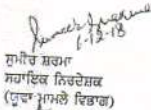 6-12-18
ਸੁਮੀਰ ਸ਼ਰਮਾ
ਸਹਾਇਕ ਨਿਰਦੇਸ਼ਕ
(ਯੁਵਾ ਮਾਮਲੇ ਵਿਭਾਗ)